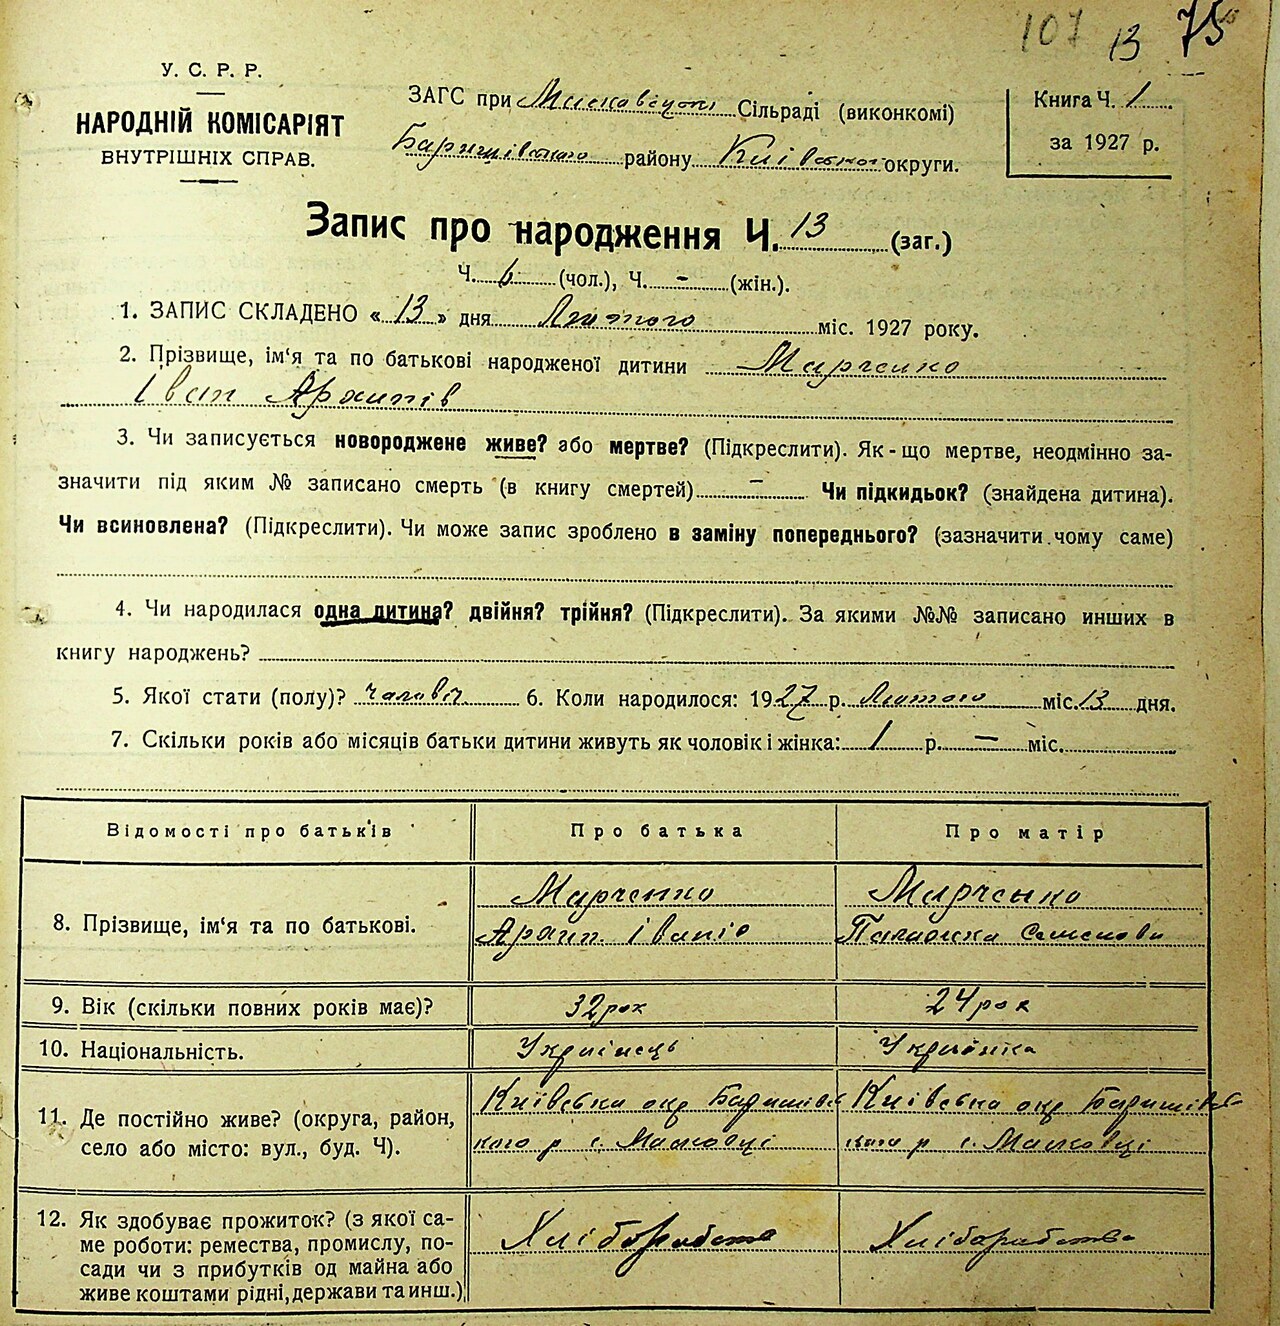 107 13 75
У. С. Р. Р.
НАРОДНІЙ КОМІСАРІЯТ
ВНУТРІШНІХ СПРАВ.
ЗАГС при Сільраді (виконкомі)
району Київського округи.
Книга Ч. 1
за 1927 р.
Запис про народження Ч. 13 (заг.)
Ч. 6 (чол.), Ч. - (жін.).
1. ЗАПИС СКЛАДЕНО « 13 » дня Лютого міс. 1927 року.
2. Прізвище, ім‘я та по батькові народженої дитини Марченко
Іван Архипів
3. Чи записується новороджене живе? або мертве? (Підкреслити). Як-що мертве, неодмінно за-
значити під яким № записано смерть (в книгу смертей) - Чи підкидьок? (знайдена дитина).
Чи всиновлена? (Підкреслити). Чи може запис зроблено в заміну попереднього? (зазначити чому саме)
4. Чи народилася одна дитина? двійня? трійня? (Підкреслити). За якими №№ записано инших в
книгу народжень?
5. Якої стати (полу)? чолович. 6. Коли народилося: 1927 р. Лютого міс. 13 дня.
7. Скільки років або місяців батьки дитини живуть як чоловік і жінка: 1 р. - міс.
Відомості про батьків Про батька Про матір
8. Прізвище, ім‘я та по батькові.
Марченко
Архип Іванів
Марченко
Палажка Семенова
9. Вік (скільки повних років має)? 32 рок 24 рок
10. Національність. Українець Українка
11. Де постійно живе? (округа, район,
село або місто: вул., буд. Ч).
Київська окр Баришівс
кого р с.
Київська окр Баришівсь-
кого р с.
12. Як здобуває прожиток? (з якої са-
ме роботи: ремества, промислу, по-
сади чи з прибутків од майна або
живе коштами рідні, держави та инш.)
Хліборобство
Хліборобство